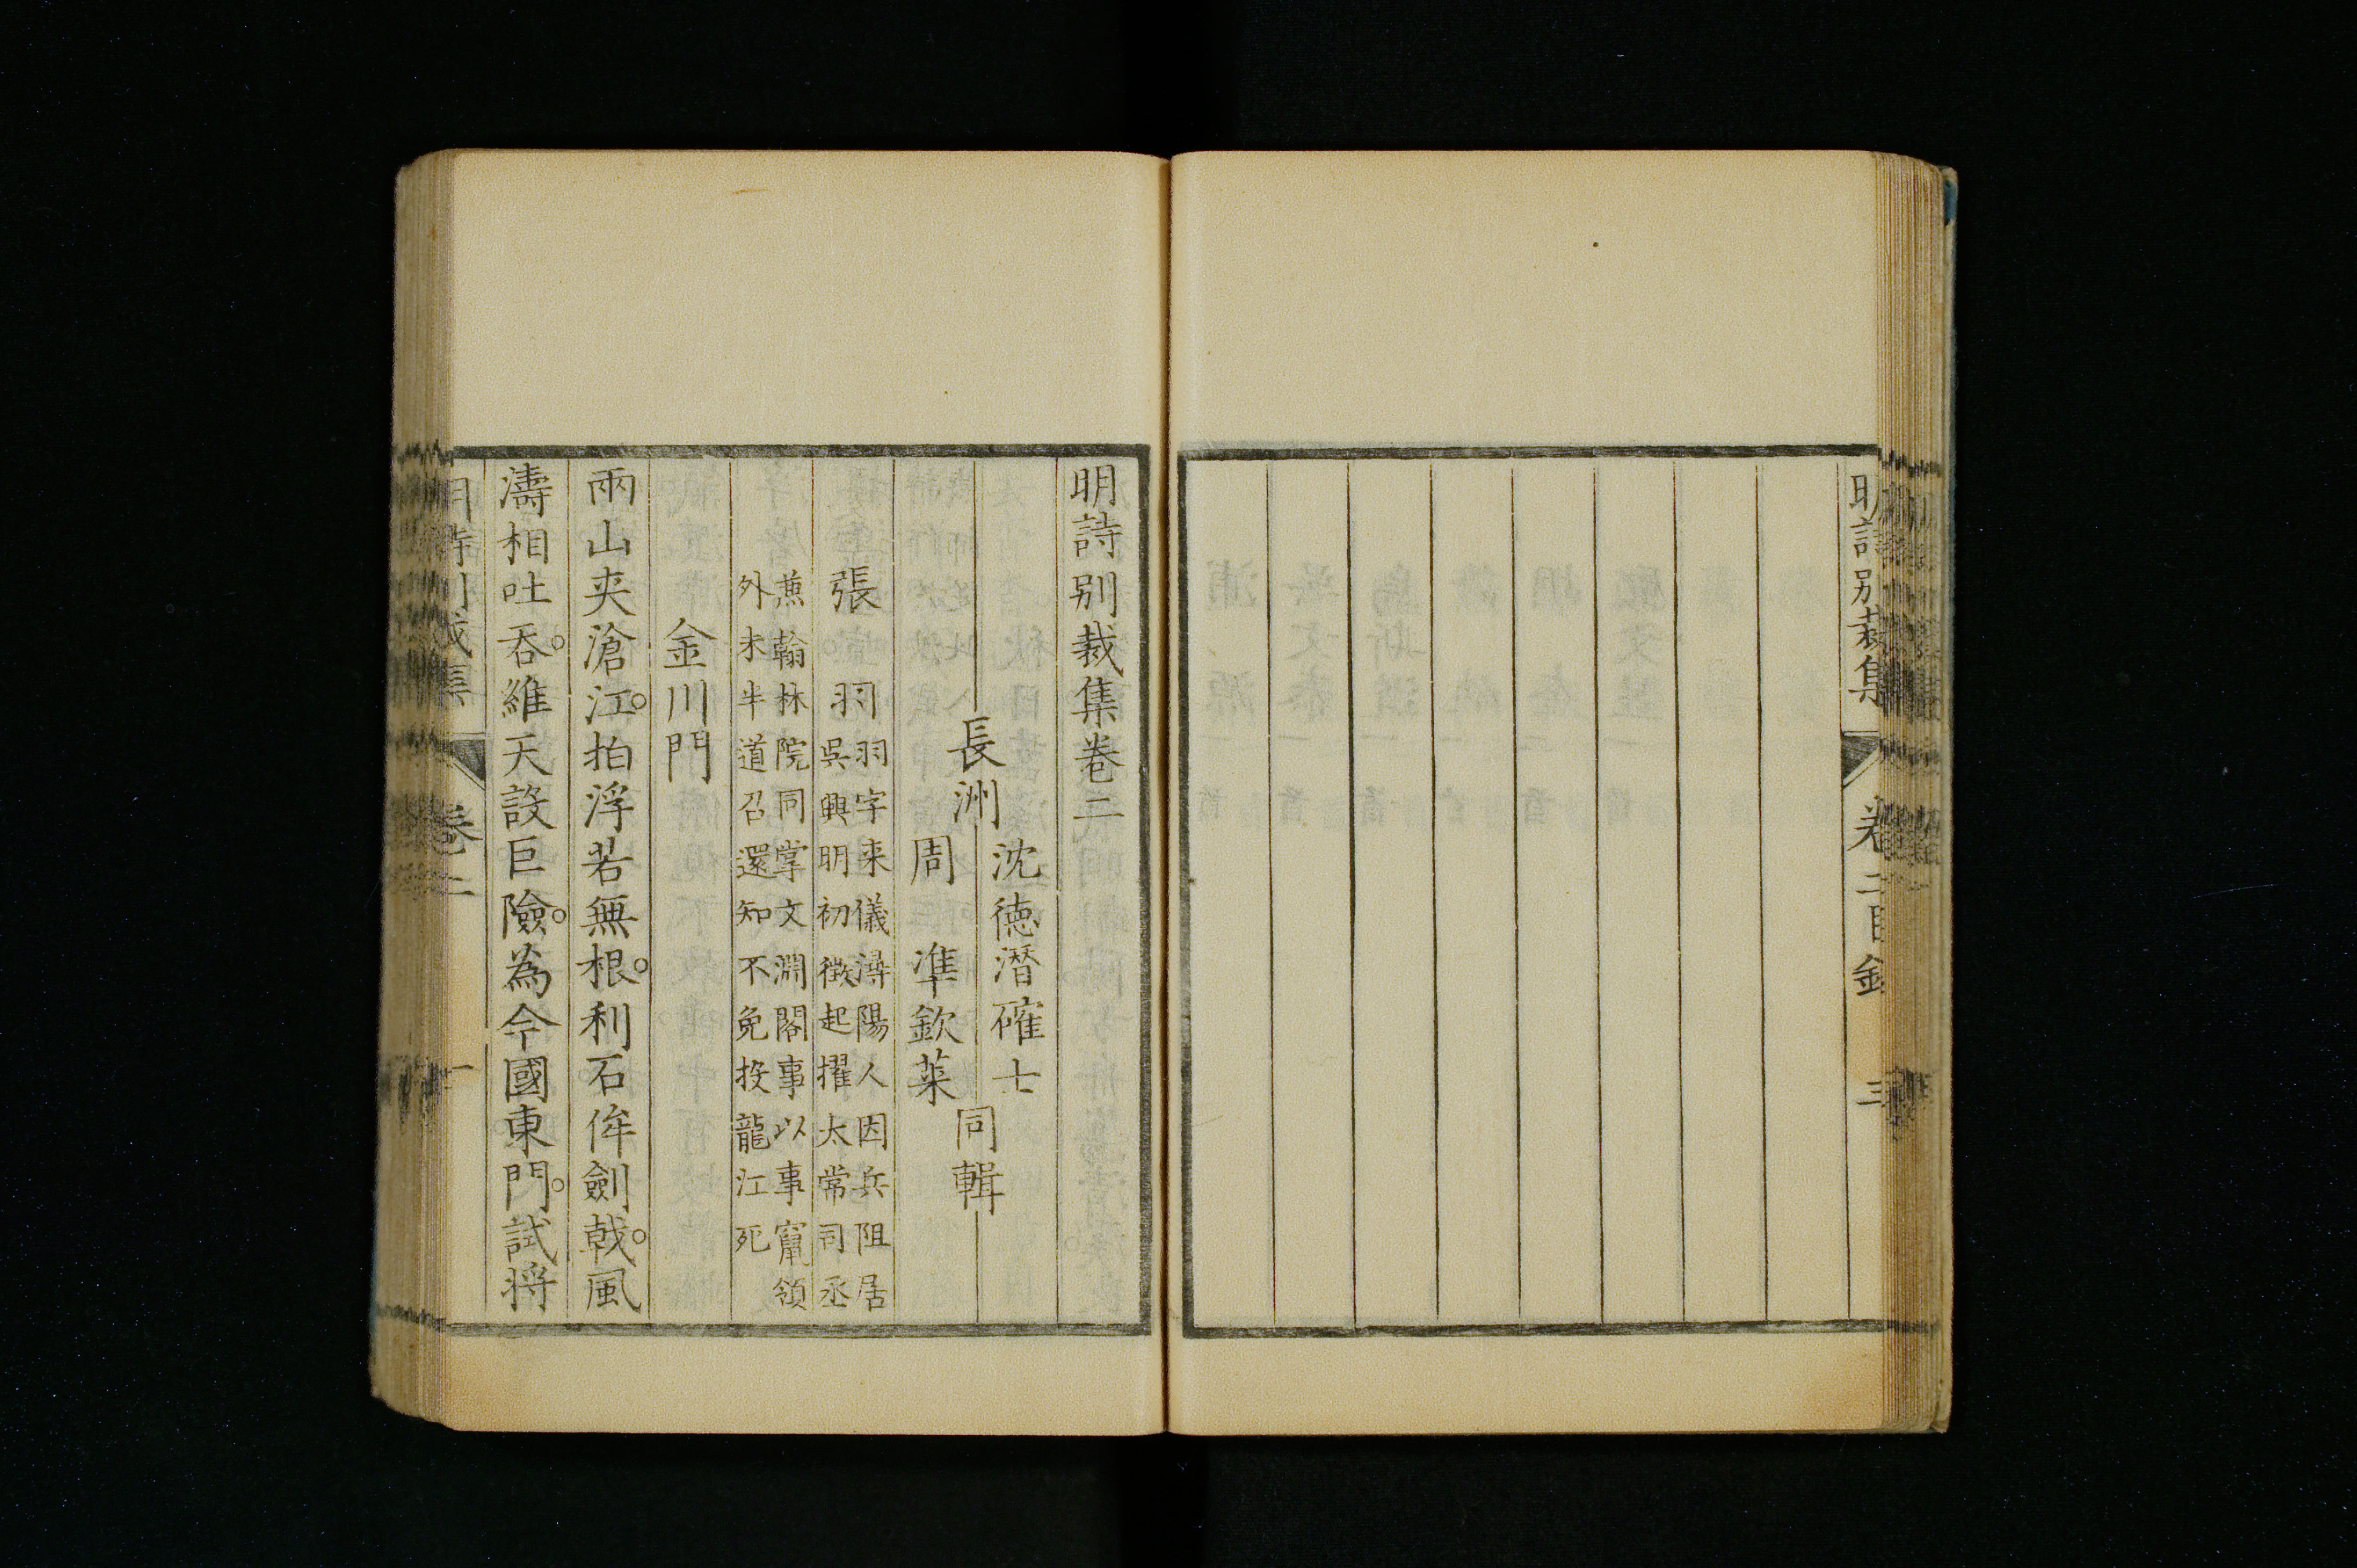 明詩別裁集
卷二目錄
三
明詩别裁集卷二
長洲
沈德潛確士
周準欽萊
同輯
張羽
羽字来儀潯陽人因兵阻居
吳興明初徵起擢太常司丞
兼翰林院同掌文淵閣事以事竄領
外未半道召還知不免投龍江死
金川門
兩山夾滄江。拍浮若無根。利石侔劍戟。風
濤相吐吞。維天設巨險。為今國東門。試将
明詩別裁集
卷二
一